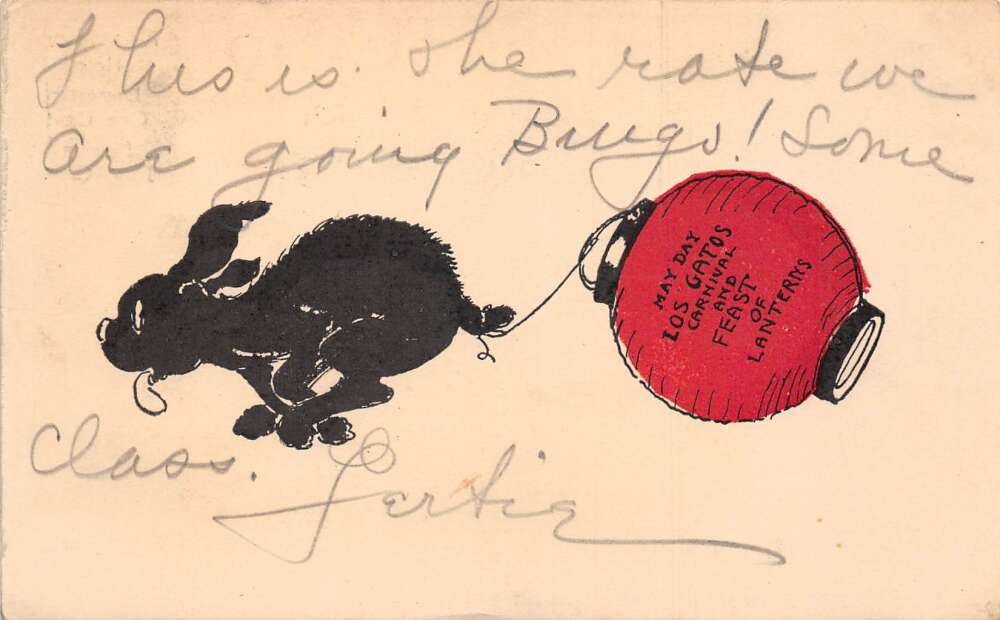 This is the rate we
are going Bings! Some
MAY DAY
LOS GATOS
CARNIVAL
AND
FEAST
OF
LANTERNS
Class. Gertie